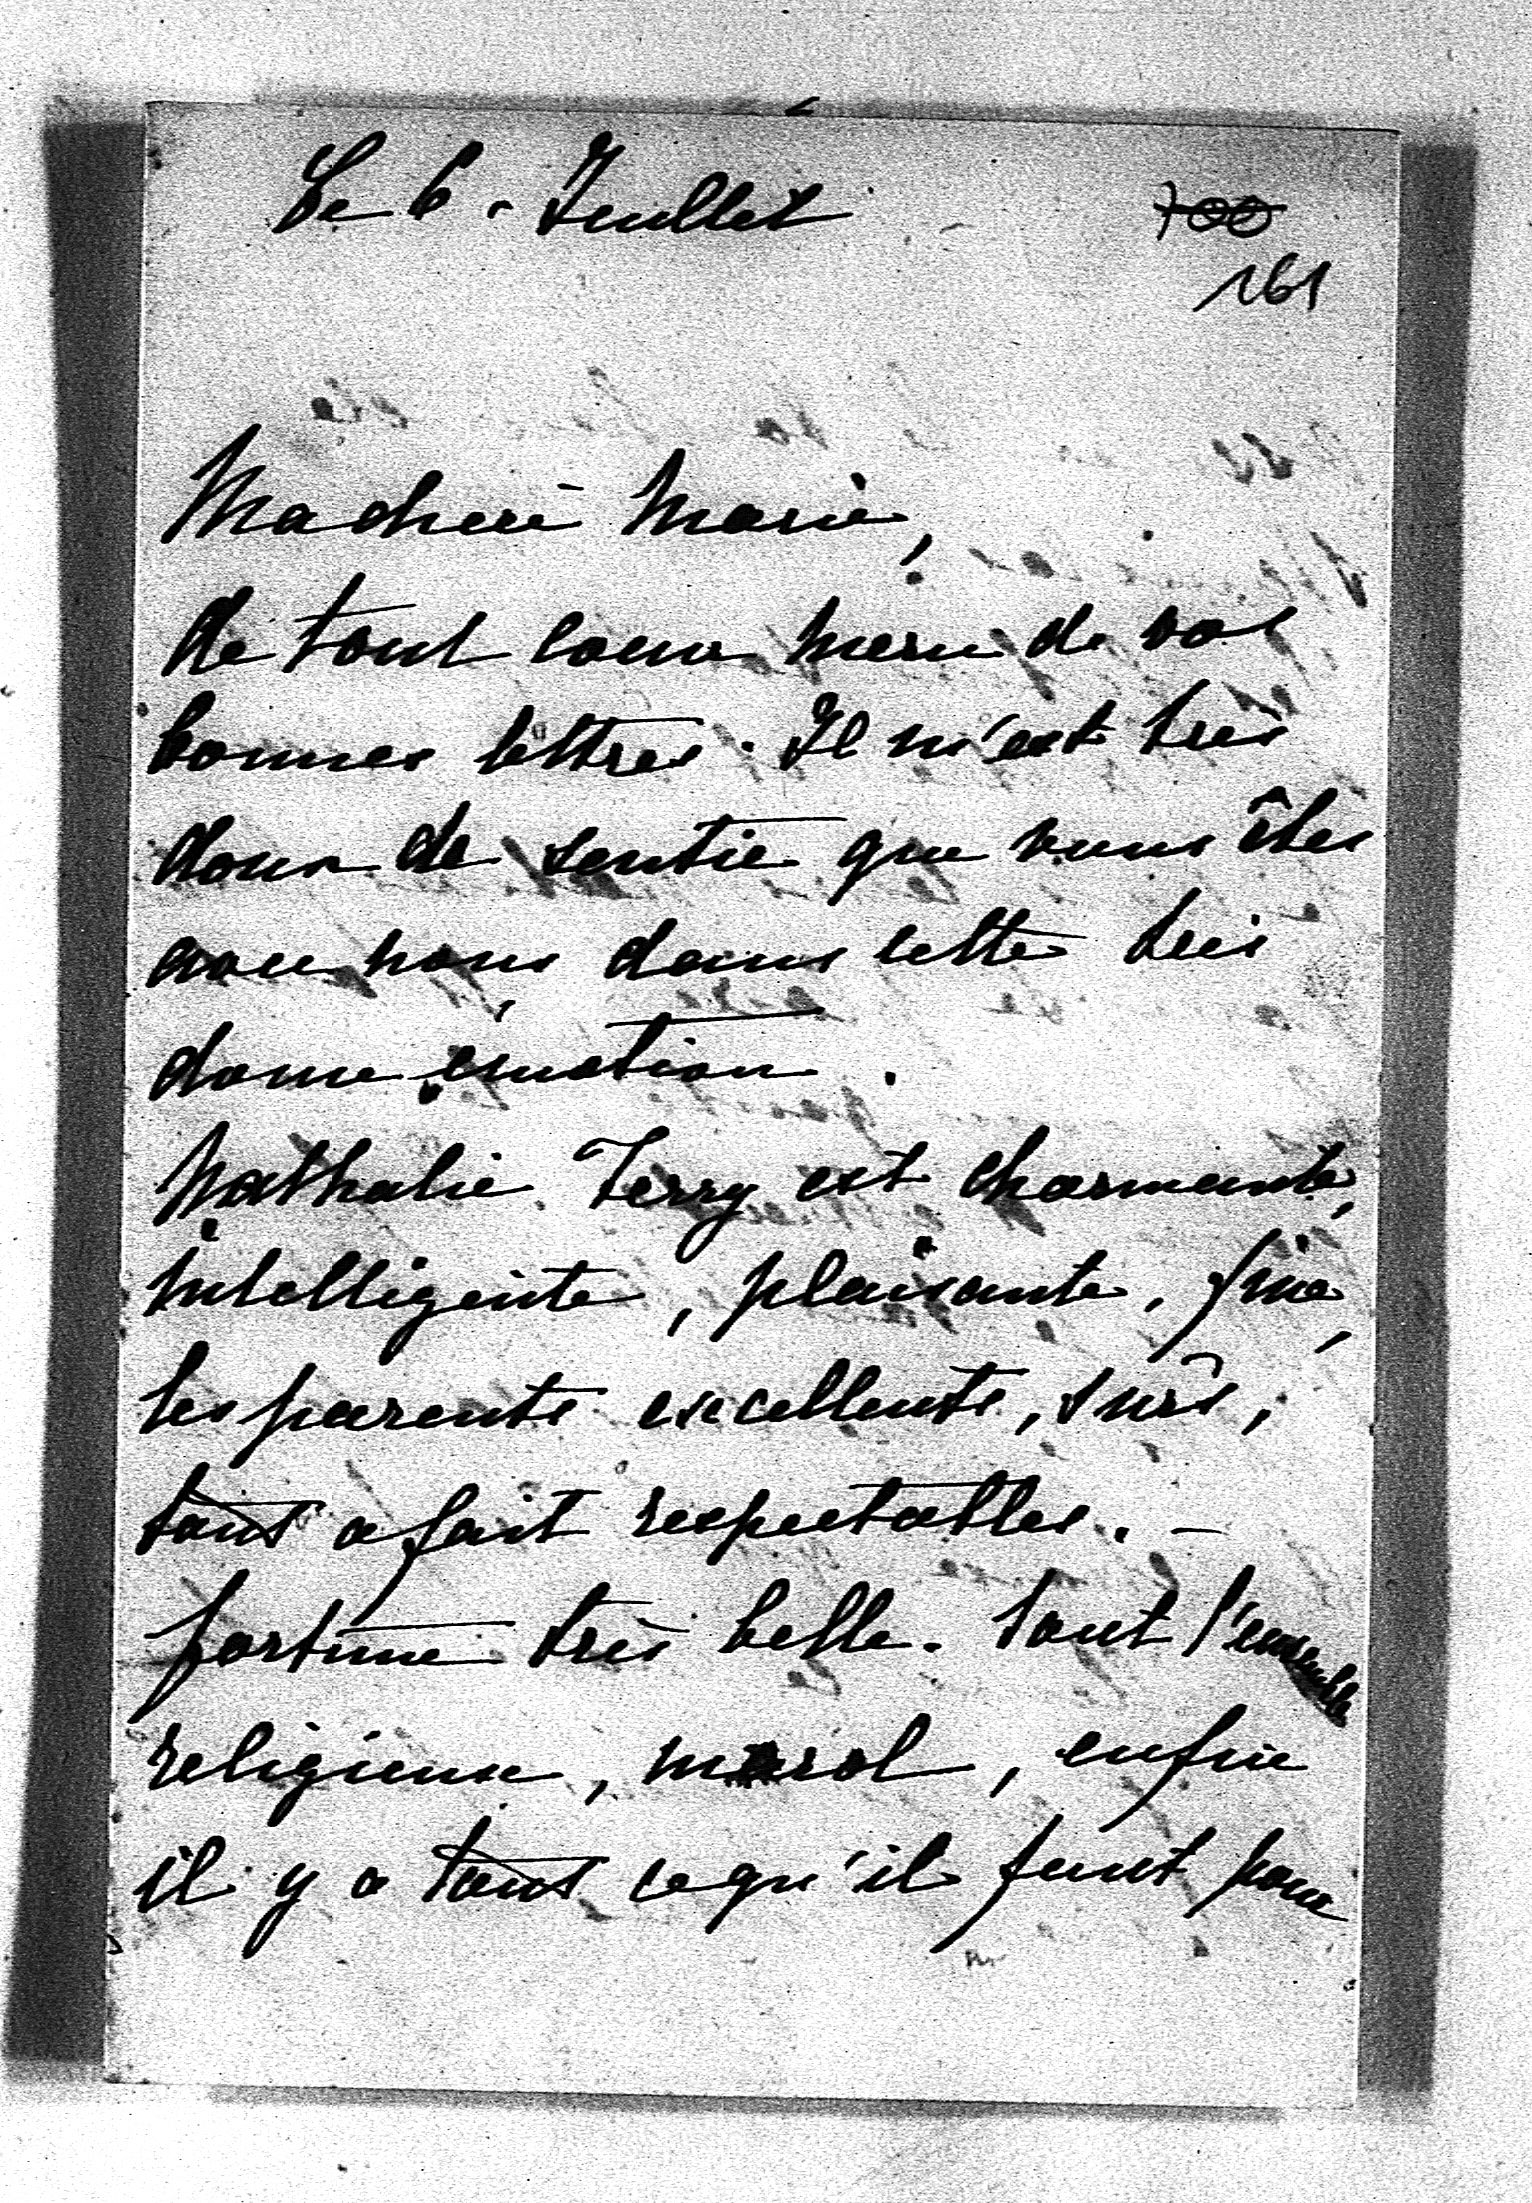 Le 6 - Juillet
700
161
Ma chère Marie,
de tout coeur merci de vos
bonnes lettres. Il m'est très
doux de sentir que vous êtes
avec nous dans cette très
douce émotion.
Nathalie Terry est charmante,
intelligente, plaisante, fine,
les parents excellents, sûrs,
tout a fait respectables. -
fortune très belle. tout l'ensemble
religieux, moral, enfin
il y a tout ce qu'il faut pour